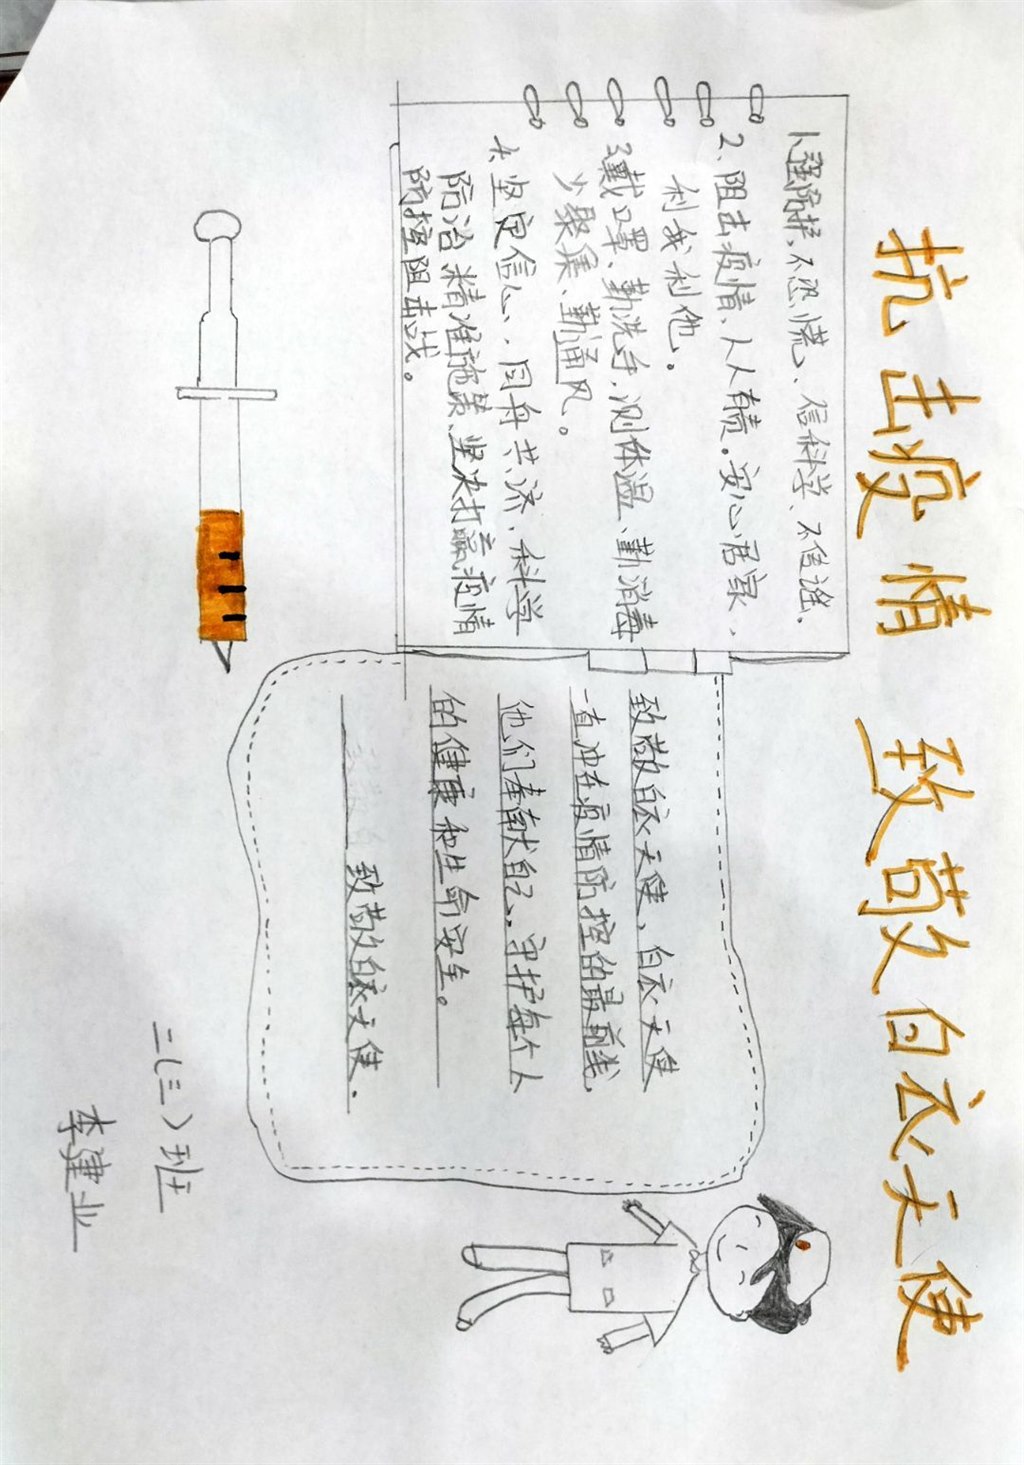 抗击疫情 致敬白衣天使
1、强防护、不恐慌、信科学、不信谣.
2、阻击疫情、人人有责。安心居家、
利我利他。
3、戴口罩、勤洗手,测体温、勤消毒
少聚集、勤通风。
4、坚定信心、同舟共济.科学
防治精准施策、坚决打赢疫情
防控阻击战。
致敬白衣天使,白衣天使
一直冲在疫情防控的最前线,
他们奉献自己,守护每个人
的健康和生命安全。
致敬白衣天使.
二(三)班
李建业